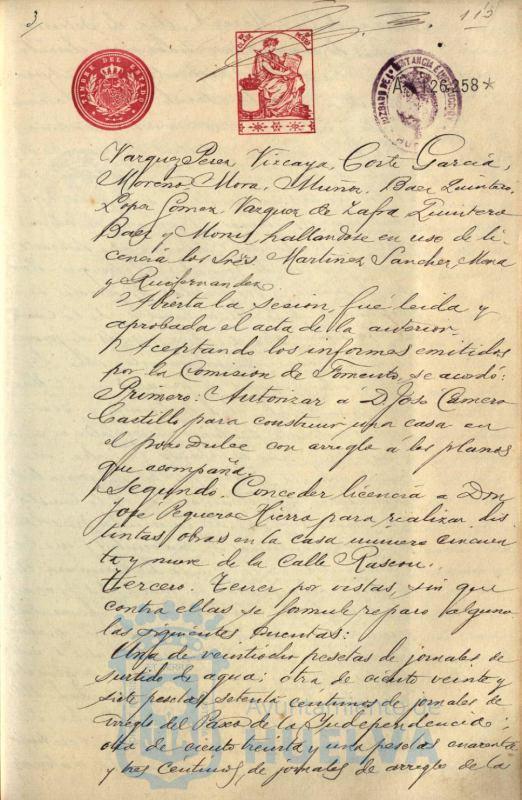 3,
113
TIMBRE DEL ESTADO
CLASE
JUZGADO DE 1ª INSTANCIA E INSTRUCCION
A 126,258*
Vazquez Perez, Vizcaya, Corte García,
Moreno, Mora, Muñoz, Baez Quintero,
Lopez Gomez, Vazquez de Zafra, Quintero
Baez y Monis, hallandose en uso de li-
cencia los Sres. Martinez Sanchez, Mora
y Ruifernandez.
Abierta la sesion, fué leida y
aprobada el acta de la anterior.
Aceptando los informes emitidos
por la Comision de Fomento, se acordó:
Primero: Autorizar a D José Camero
Castillo para construir una casa en
el pozo Dulce con arreglo á los planos
que acompaña.
Segundo. Conceder licencia a Don
José Peguero Hierro para realizar dis-
tintas obras en la casa numero cincuen
ta y nueve de la Calle Rascon.
Tercero. Tener por vistas, sin que
contra ellas se formule reparo alguno
las siguientes cuentas:
Una de veintiocho pesetas de jornales de
surtido de agua; otra de ciento veinte y
siete pesetas setenta centimos de jornales de
arreglo del Paseo de la Independencia;
otra de ciento treinta y una pesetas cuarenta
y tres centimos, de jornales de arreglo de la
Ayuntamiento de
HUELVA